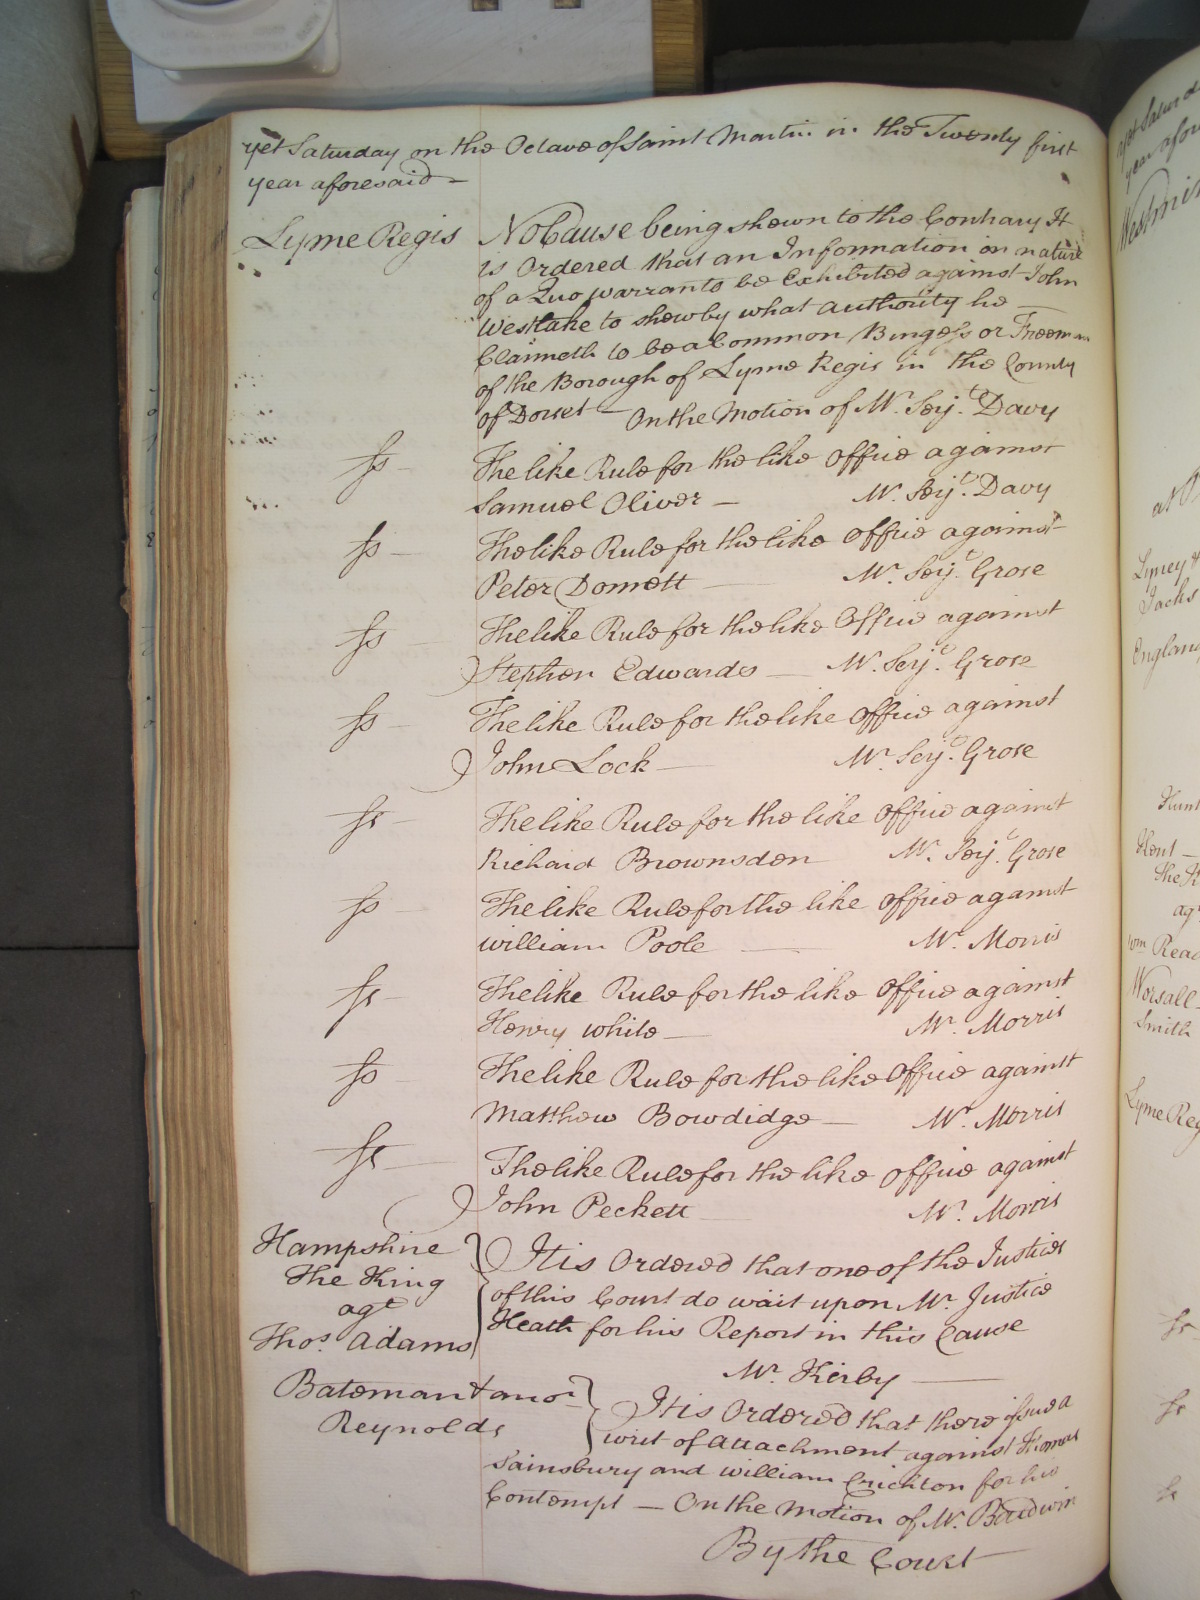 yet Saturday on the Octave of Saint Martin in the Twenty first
year aforesaid —
Lyme Regis No Cause being shewn to the Contrary It
is Ordered that an Information in nature
of a Quo warranto be Exhibited against John
Westlake to shew by what authority he —
Claimeth to be a Common Burgess or Freeman
of the Borough of Lyme Regis in the County
of Dorset — On the Motion of Mr. Serjt. Davy
ss — The like Rule for the like Office against
Samuel Oliver — Mr. Serjt. Davy
ss — The like Rule for the like office against
Peter Domett — Mr. Serjt. Grose
ss — The like Rule for the like Office against
Stephen Edwards — Mr. Serjt. Grose
ss — The like Rule for the like office against
John Lock — Mr. Serjt. Grose
ss — The like Rule for the like office against
Richard Brownsden Mr. Serjt. Grose
ss — The like Rule for the like office against
William Poole — Mr. Morris
ss — The like Rule for the like office against
Henry White — Mr. Morris
ss — The like Rule for the like Office against
Matthew Bowdidge — Mr. Morris
ss — The like Rule for the like office against
John Peckett — Mr. Morris
Hampshire It is Ordered that one of the Justices
The King of this Court do wait upon Mr. Justice
agt Heath for his Report in this Cause
Thos. Adams
Mr. Kirby —
Bateman & anor. It is Ordered that there issue a
Reynolds writ of attachment against Thomas
Sainsbury and William Crichton for his
Contempt — On the Motion of Mr. Baldwin
By the Court
Westmin
Lymey &
Jacks
England
Hunt
Kent —
The K
agt
Wm Read
Worsall
Smith
Lyme Reg
ss
ss
ss